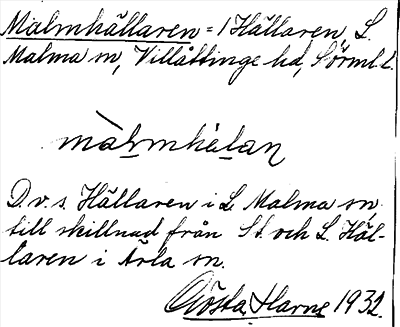 Malmhällaren = / Hällaren, L.
Malma sn, Villåttinge hd, Sörml. l.
màlmhélan
D.v.s. Hällaren i L. Malma sn
till skillnad från St. och L. Häl-
laren i Ärla sn.
Gösta Harne 1932.